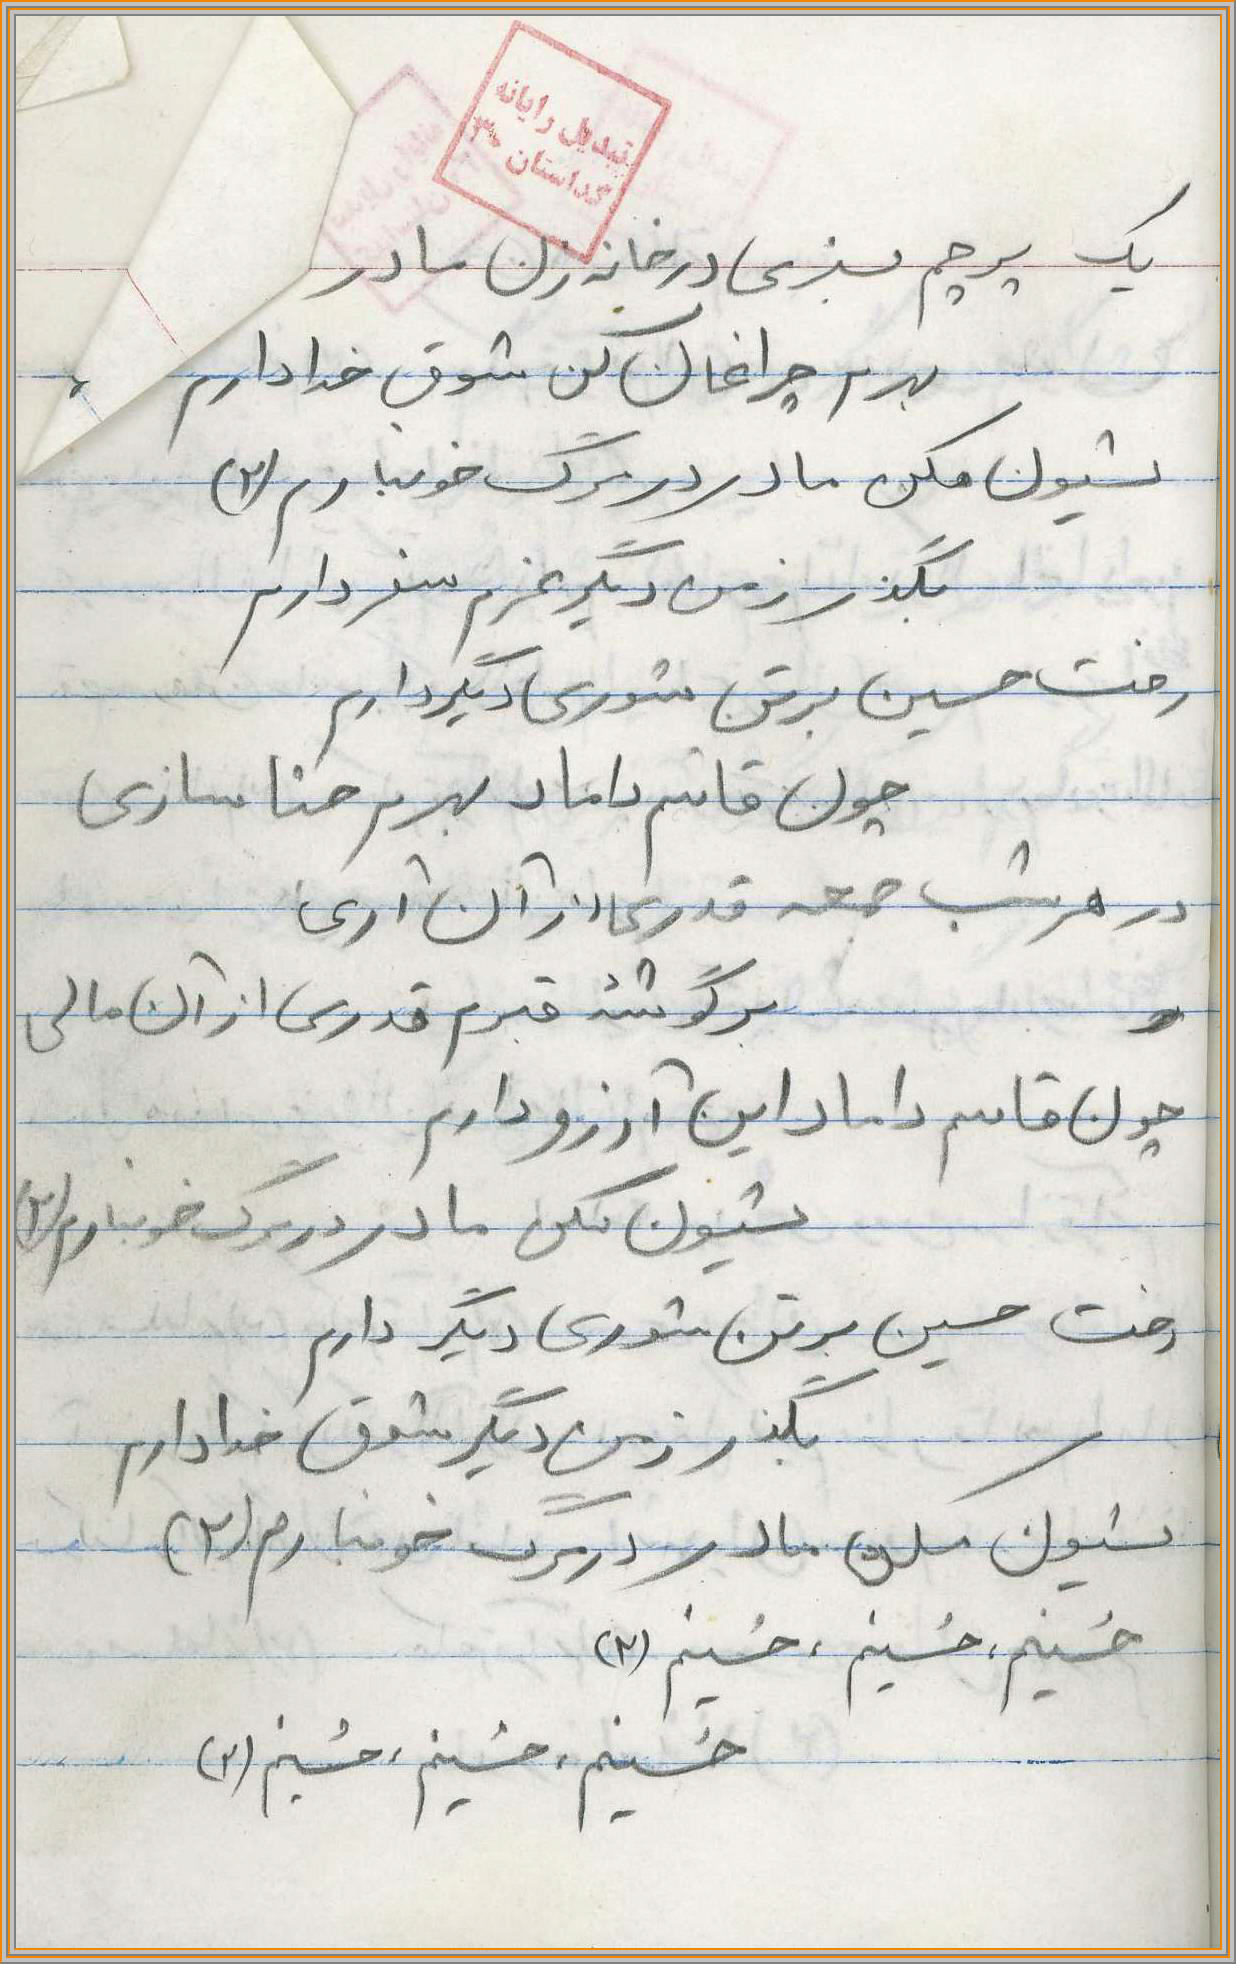 تبدیل رایانه
گداستان ۳۰
یک پرچم سبزی در خانه زن مادر
بهرم چراغان کن شوق خدا دارم
شیون مکن مادر در مرگ خونبارم (۲)
بگذر ز من دیگر عزم سفر دارم
رخت حسین بر تن شوری دگیر دارم
چون قاسم داماد بهرم حنا سازی
در هر شب جمعه قدری از آن آری
بر گوشهٔ قبرم قدری از آن مالی
چون قاسم داماد این آرزو دارم
شیون مکن مادر در مرگ خونبارم (۲)
رخت حسین بر تن شوری دیگر دارم
بگذر ز من دیگر شوق خدا دارم
شیون مکن مادر در مرگ خونبارم (۲)
حُسینم، حُسینم، حُسینم (۲)
حُسینم، حُسینم، حُسینم (۲)